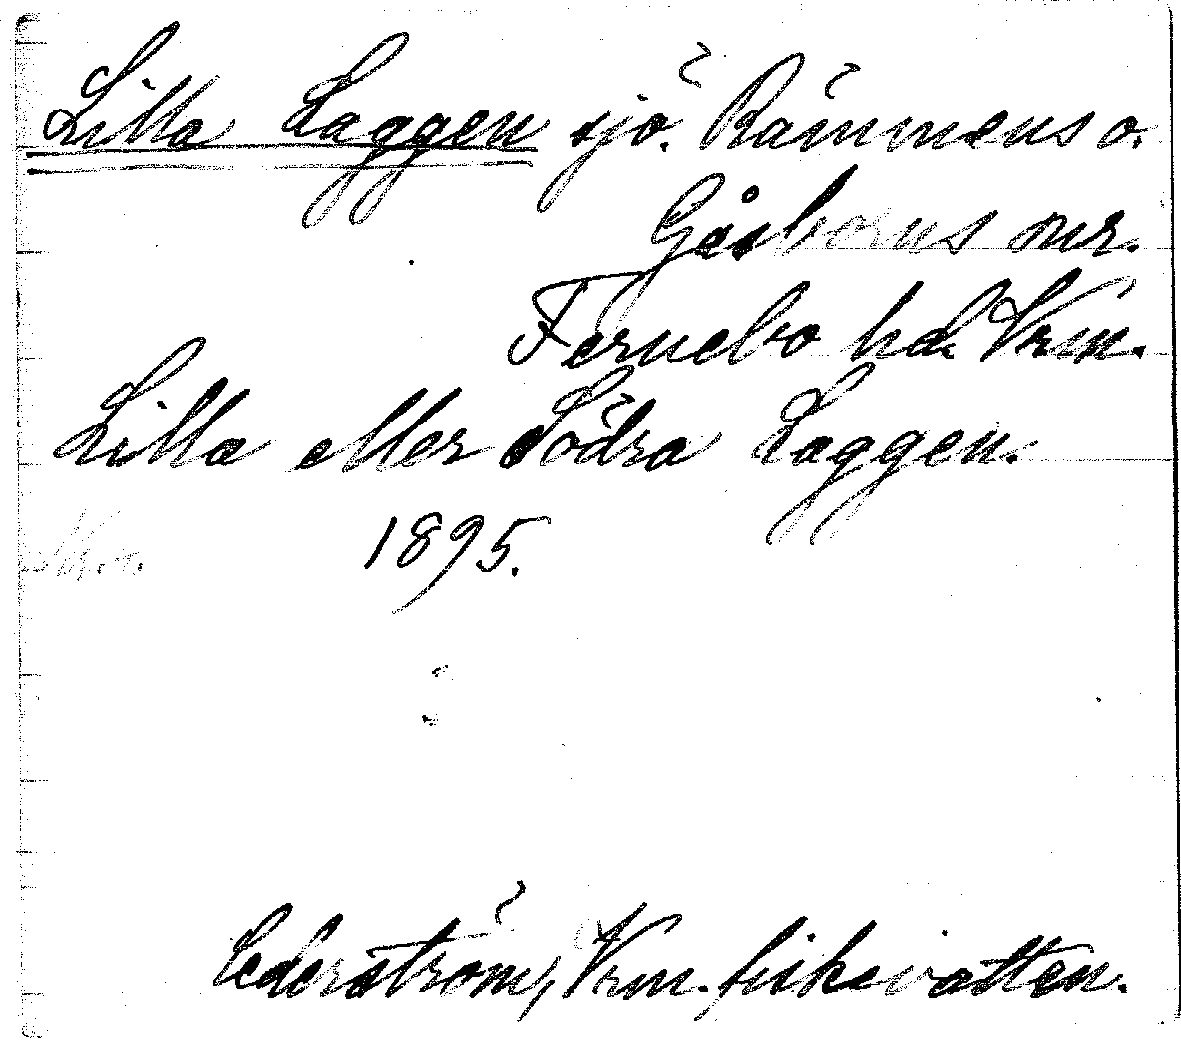 Lilla Laggen sjö. Rämmens o.
Gåsborns snr.
Fernebo hd. Vrm.
Lilla eller Södra Laggen.
1895.
Cederström, Vrm. fiskevatten.